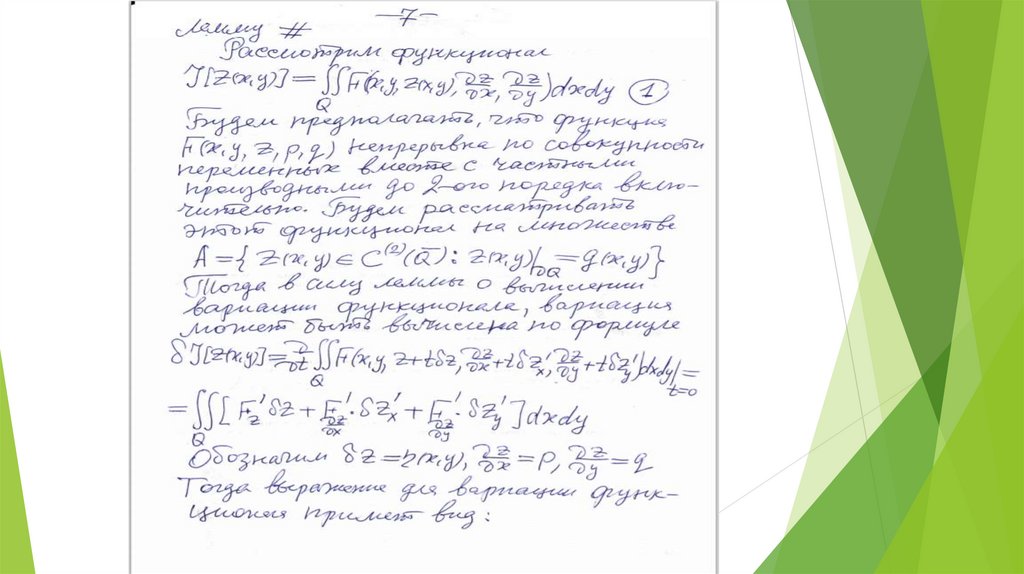 -7-
лемму #
Рассмотрим функционал
J[z(x,y)] = ∬_Q F(x,y,z(x,y), ∂z/∂x, ∂z/∂y)dxdy (1)
Будем предполагать, что функция
F(x,y,z,p,q) непрерывна по совокупности
переменных вместе с частными
производными до 2-ого порядка вклю-
чительно. Будем рассматривать
этот функционал на множестве
A = { z(x,y) ∈ C^(2)(Q̄) : z(x,y)|_∂Q = g(x,y)}
Тогда в силу леммы о вычислении
вариации функционала, вариация
может быть вычислена по формуле
δJ[z(x,y)] = ∂/∂t ∬_Q F(x,y, z+tδz, ∂z/∂x + tδz'_x, ∂z/∂y + tδz'_y)dxdy|_t=0 =
= ∬_Q [F'_z δz + F'_∂z/∂x · δz'_x + F'_∂z/∂y · δz'_y]dxdy
Обозначим δz = η(x,y), ∂z/∂x = p, ∂z/∂y = q
Тогда выражение для вариации функ-
ционала примет вид: